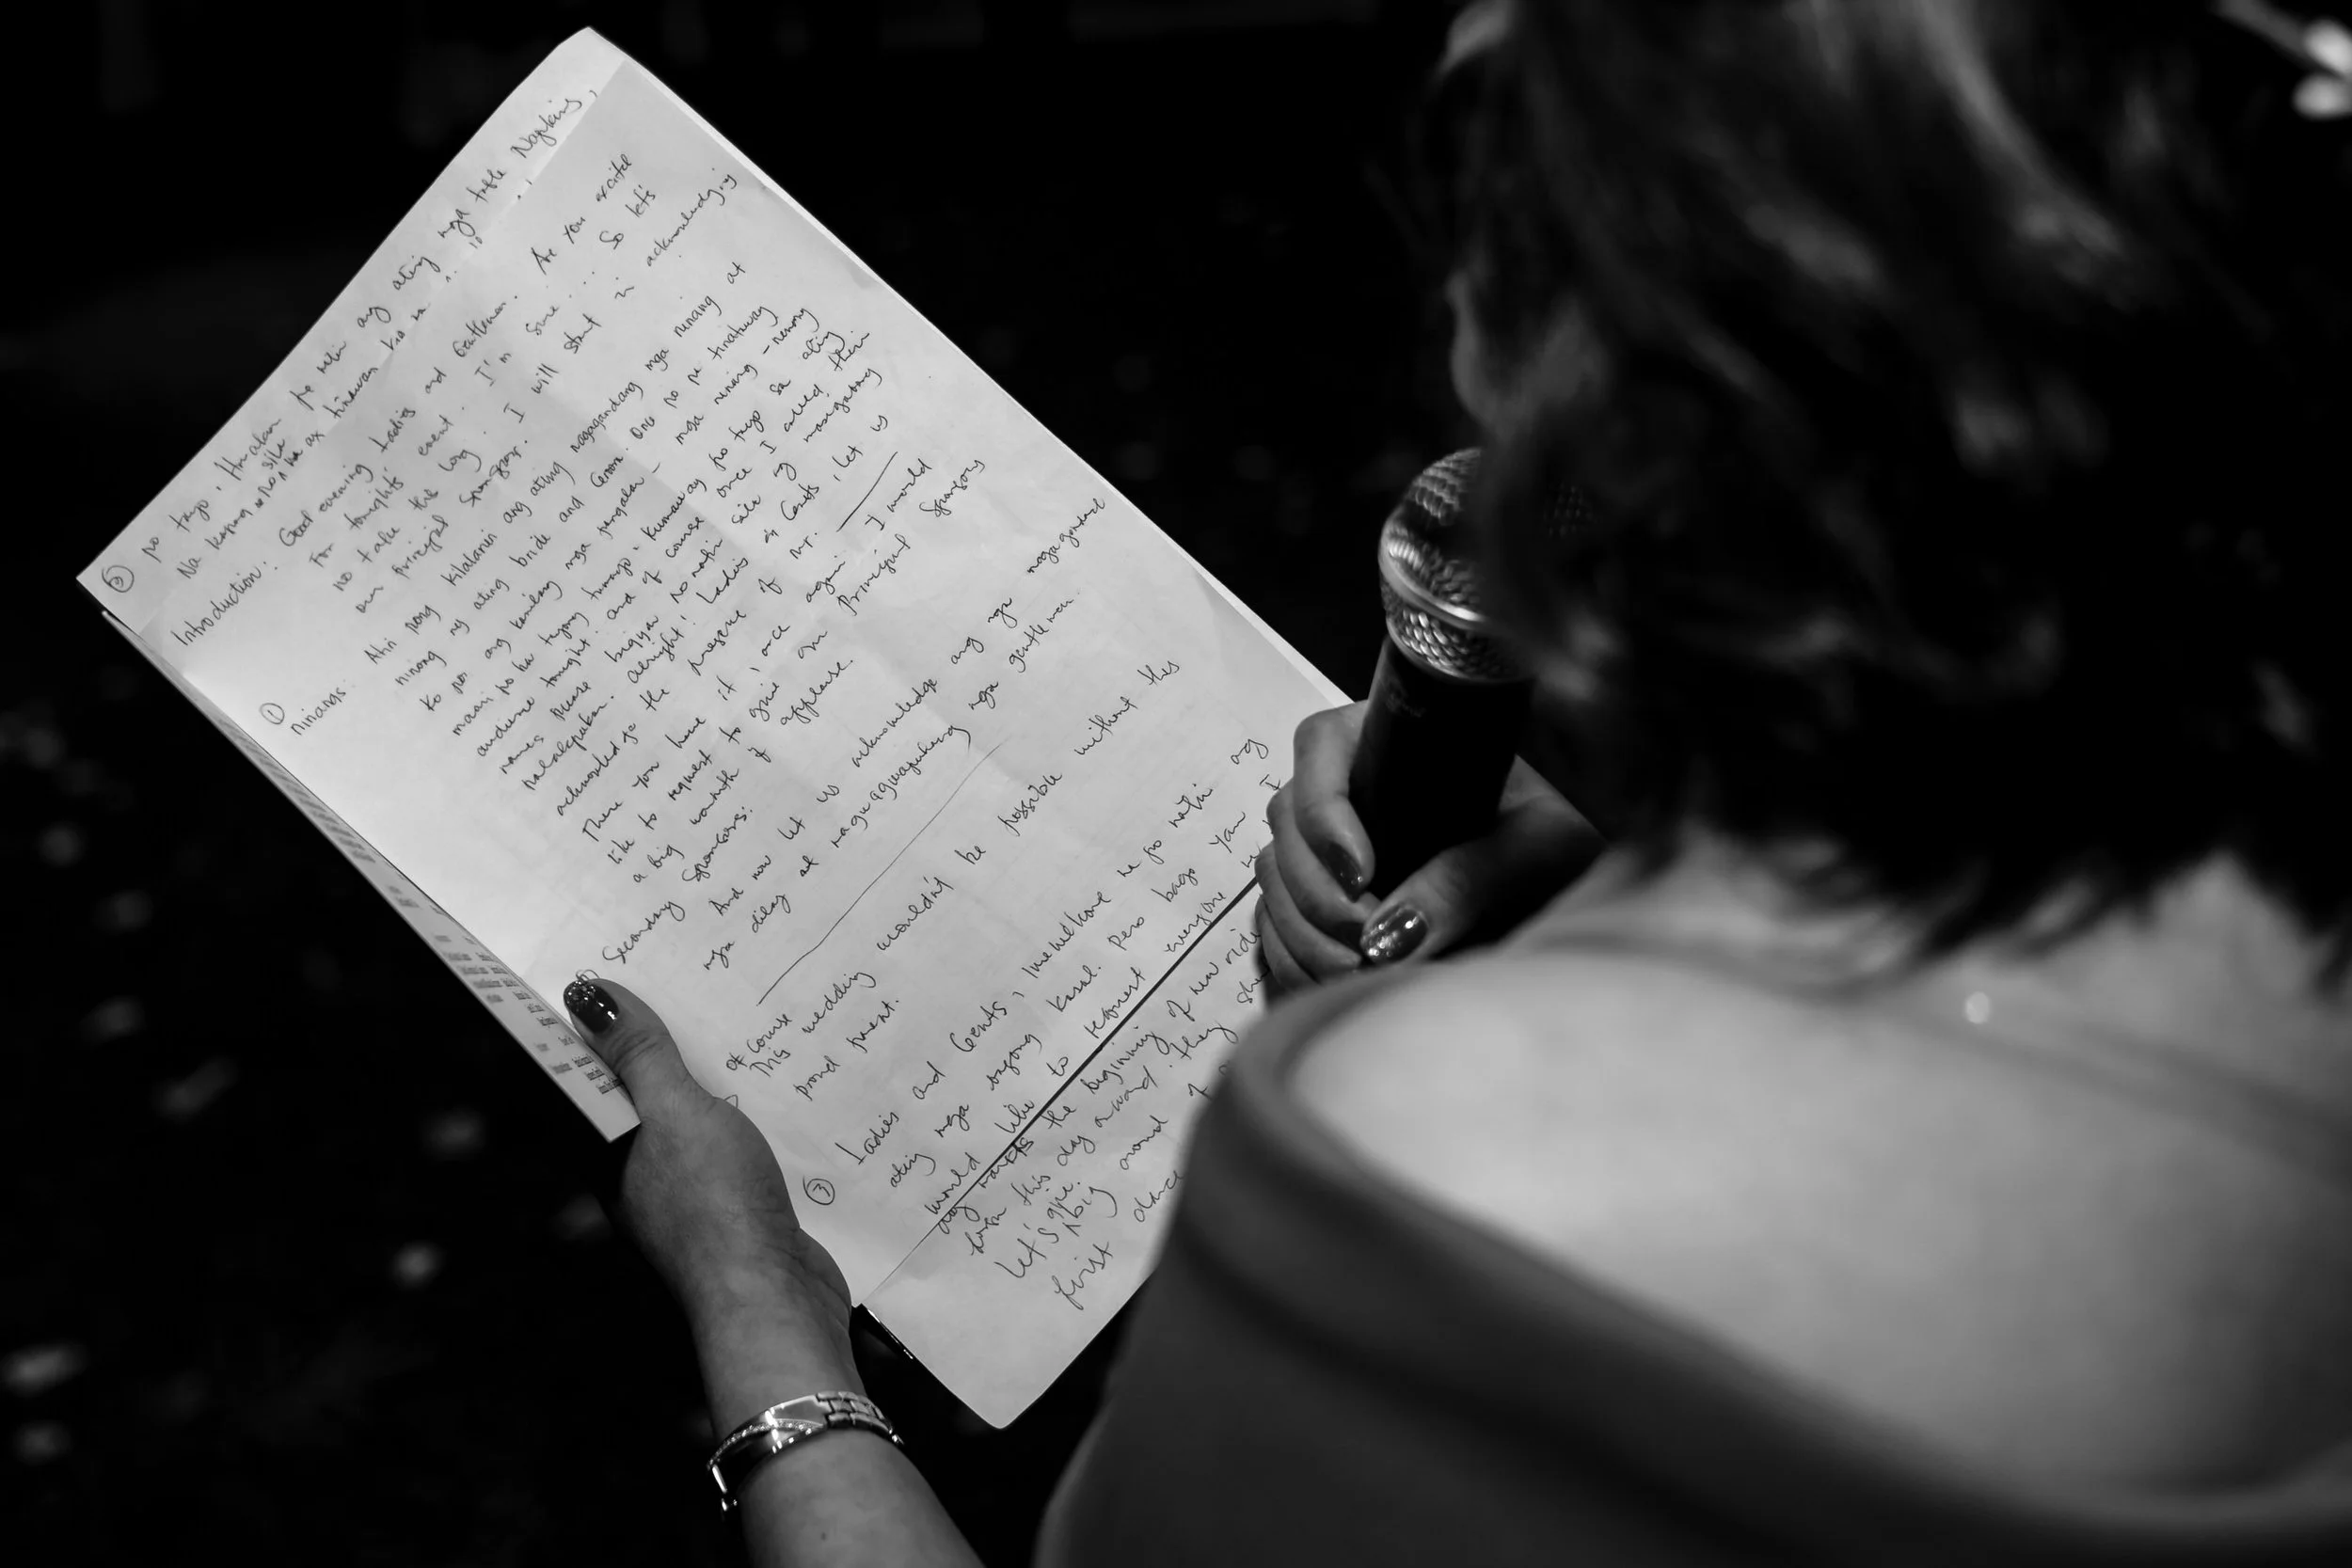 ⑤ po tayo. Hawakan po natin ang ating mga table Napkins,
Na kapag po sila na ay tinawan
Introduction: Good evening Ladies and Gentleman. Are You excited
For tonight's event. I'm sure... So let's
no take the long. I will start in acknowledging
our principal Sponsor.
① ninangs: Atin pong kilalanin ang ating nagagandang mga ninang at
ninong ng ating bride and Groom. Once po na tinatawag
ko po ang kanilang mga pangalan - mga ninang - ninong
maari po ba tayong tumayo. Kumaway po tayo sa ating
audience tonight. and of course once I called their
names please bigyan po natin sila ng masigabong
palakpakan. Alright! Ladies & Gents, let us
acknowledge the presence of Mr.
There you have it! once again I would
like to request to give our Principal Sponsors
a big warmth of applause.
Secondary Sponsors:
And now let us acknowledge ang mga nagagandang
mga dilag at naguguwapuhang mga gentleman.
of course
This wedding wouldn't be possible without this
proud parent.
③ Ladies and Gents, po natin ang
ating mga bagong kasal. Pero bago Yan I
would like to request everyone
day marks the beginning of new
from this day onward. they
Let's give
A big round of
first dance